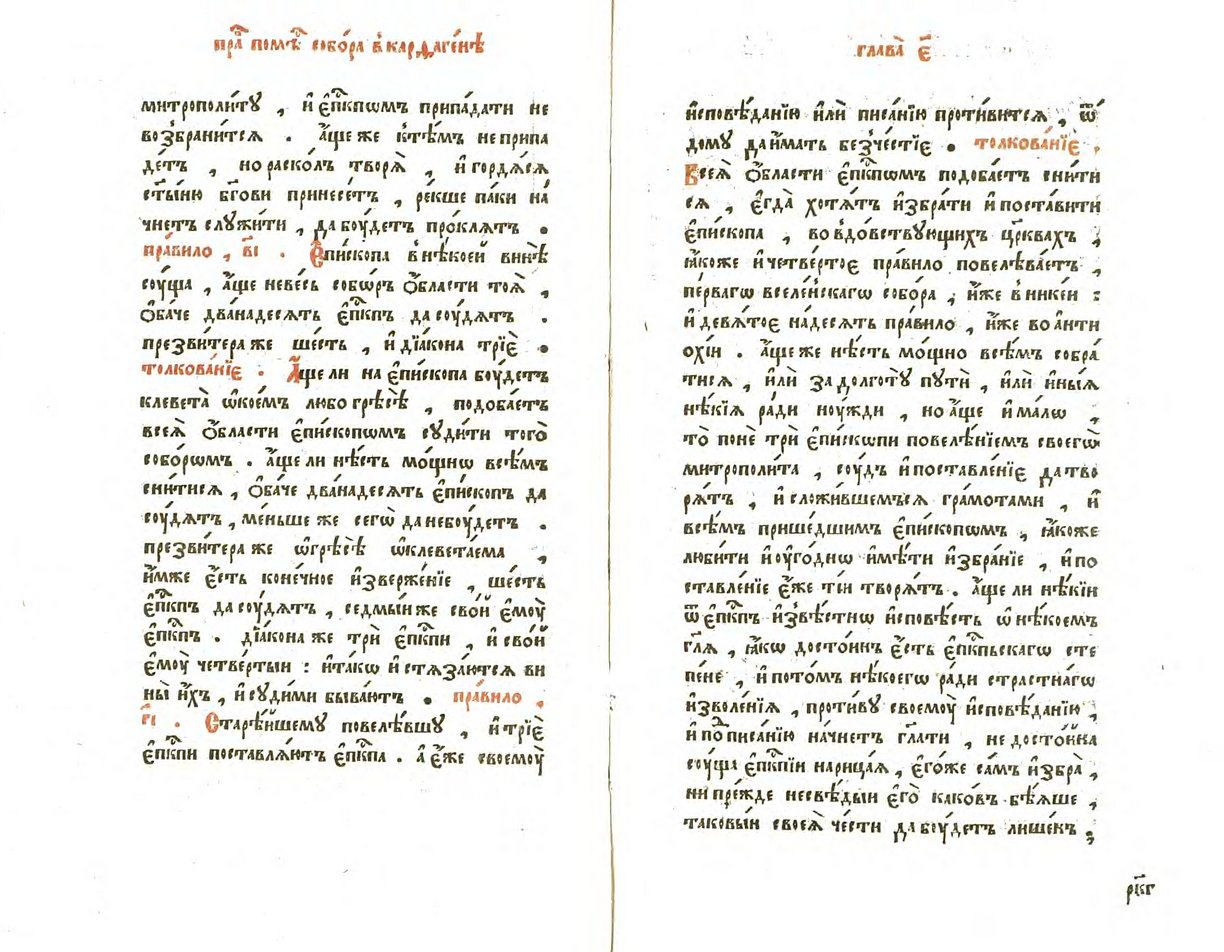 пра҇ пом҇ѣ собо́ра в̾ кардаге́нѣ
митрополи́тꙋ , и҆ є҆пⷭ҇кпѡмъ припа́дати не
возбрани́тсѧ . а҆́ще же к̾ тѣ́мъ не припа
де́тъ , но раско́лъ творѧ̀ , и҆ гордѧ́сѧ
ст҃ы́ню бг҃ови принесе́тъ , ре́кше па́ки на́
чнетъ слꙋжи́ти , да бꙋ́детъ про́клѧтъ .
пра́вило , в҃і . Є҆пи́скопа в̾ нѣ́коей винѣ̀
сꙋ́ща , а҆́ще не ве́сь собо́ръ ѻ҆́бласти тоѧ̀ ,
ѻ҆ба́че двана́десѧть є҆пⷭ҇кпъ да сꙋ́дѧтъ .
презви́тера же ше́сть , и҆ дїа́кона трїѐ .
толкова́нїе . А҆́ще ли на є҆пи́скопа бꙋ́детъ
клевета̀ ѡ҆ ко́емъ любо грѣ́сѣ , подоба́етъ
всеѧ̀ ѻ҆́бласти є҆пи́скопѡмъ сꙋди́ти того̀
собо́рѡмъ . а҆́ще ли нѣ́сть мо́щнѡ всѣ́мъ
сни́тисѧ , ѻ҆ба́че двана́десѧть є҆пи́скопъ да
сꙋ́дѧтъ , ме́ньше же сегѡ̀ да не бꙋ́детъ .
презви́тера же ѡ҆ грѣ́сѣ ѡ҆клевета́ема ,
и҆́мже є҆́сть коне́чное и҆зверже́нїе , ше́сть
є҆пⷭ҇кпъ да сꙋ́дѧтъ , седмы́и же сво́й є҆мꙋ̀
є҆пⷭ҇кпъ . дїа́кона же трѝ є҆пⷭ҇кпи , и҆ сво́й
є҆мꙋ̀ четве́ртыи : и҆ та́кѡ и҆стѧза́ютсѧ ви
ны̀ и҆́хъ , и҆ сꙋди́ми быва́ютъ . пра́вило ,
г҃і . Старѣ́йшемꙋ повелѣ́вшꙋ , и҆ трїѐ
є҆пⷭ҇кпи поставлѧ́ютъ є҆пⷭ҇кпа . а҆ є҆́же своемꙋ̀
глава̀ є҃
и҆сповѣ́данїю и҆лѝ писа́нїю проти́витсѧ , ѿ
домꙋ̀ да и҆́мать безче́стїе . толкова́нїе .
Всеѧ̀ ѻ҆́бласти є҆пⷭ҇кпѡмъ подоба́етъ сни́ти
сѧ , є҆гда̀ хотѧ́тъ и҆збра́ти и҆ поста́вити
є҆пи́скопа , во вдо́вствꙋющихъ цр҃квахъ ,
ꙗ҆́коже и҆ четве́ртое пра́вило повелѣва́етъ ,
пе́рвагѡ вселе́нскагѡ собо́ра , и҆́же в̾ нике́и :
и҆ девѧ́тое на́десѧть пра́вило , и҆́же во а҆нти
охі́и . а҆́ще же нѣ́сть мо́щно всѣ́мъ собра́
тисѧ , и҆лѝ за долготꙋ̀ пꙋтѝ , и҆лѝ и҆ны́ѧ
нѣ́кїѧ ра́ди нꙋ́жди , но а҆́ще и҆ ма́лѡ ,
то̀ понѐ трѝ є҆пи́скѡпи повелѣ́нїемъ своегѡ̀
митрополи́та , сꙋ́дъ и҆ поставле́нїе да тво
рѧ́тъ , и҆ сложи́вшемъсѧ гра́мотами , и҆
всѣ́мъ прише́дшимъ є҆пи́скопѡмъ , ꙗ҆́коже
люби́ти и҆ ᲂу҆го́днѡ и҆мѣ́ти и҆збра́нїе , и҆ по
ставле́нїе є҆́же ті́и творѧ́тъ . а҆́ще ли нѣ́кїи
ѿ є҆пⷭ҇кпъ и҆звѣ́стнѡ и҆сповѣ́сть ѡ҆ нѣ́коемъ
гл҃ѧ , ꙗ҆́кѡ досто́инъ є҆́сть є҆пⷭ҇кпьскагѡ сте
пе́не , и҆ пото́мъ нѣ́коегѡ ра́ди стрⷭ҇тнагѡ
и҆зволе́нїѧ , проти́вꙋ своемꙋ̀ и҆сповѣ́данїю ,
и҆ по̀ писа́нїю начне́тъ гл҃ати , не досто́йна
сꙋ́ща є҆пⷭ҇кпїи нарица́ѧ , є҆го́же са́мъ и҆збра̀ ,
ни пре́жде несвѣ́дыи є҆го̀ како́въ бѣ́ѧше ,
таковы́и своеѧ̀ че́сти да бꙋ́детъ лише́нъ ,
рк҃г